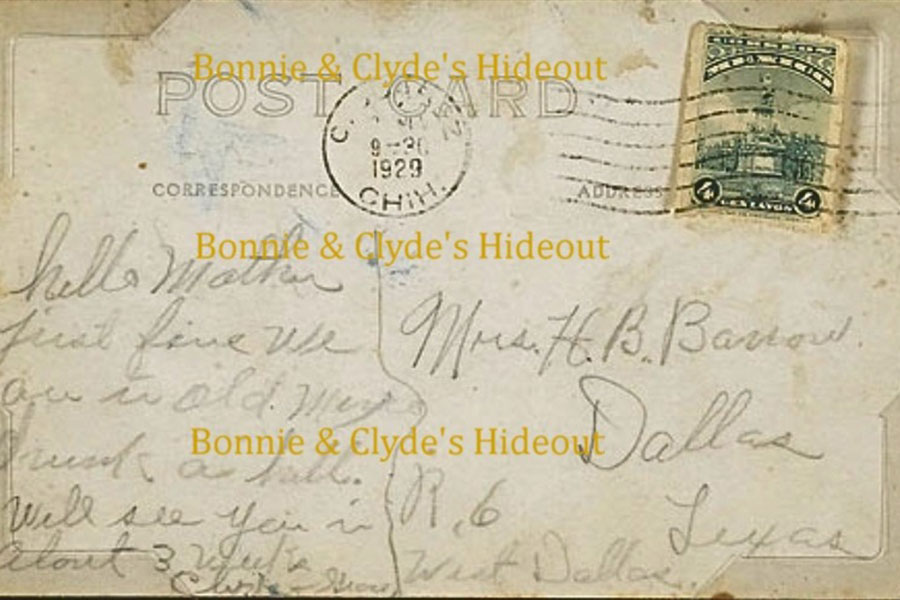 Bonnie & Clyde's Hideout
POST CARD
9-30
1929
CHIH.
CORRESPONDENCE
ADDRESS
4 CENTAVOS 4
Bonnie & Clyde's Hideout
hello Mother
just fine we
are in old Mex
Drunk as hell.
will see you in
about 3 weeks
Mrs. H. B. Barrow.
Dallas
Bonnie & Clyde's Hideout
R. 6
Texas
West Dallas.